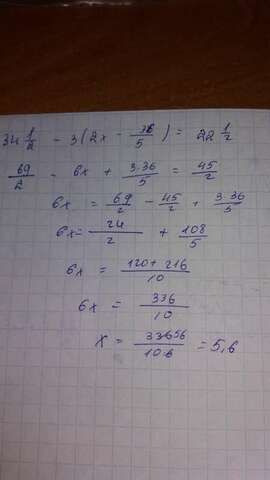 34 1/2 - 3(2x - 36/5) = 22 1/2
69/2 - 6x + 3·36/5 = 45/2
6x = 69/2 - 45/2 + 3·36/5
6x = 24/2 + 108/5
6x = 120+216/10
6x = 336/10
x = 33656/10·6 = 5,6